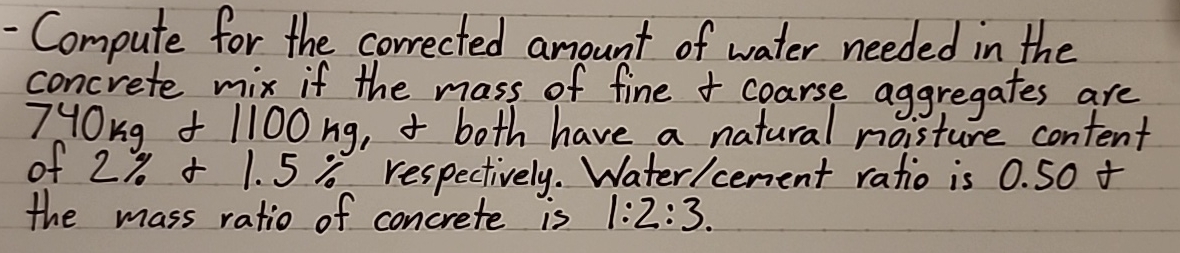 - Compute for the corrected amount of water needed in the
concrete mix if the mass of fine & coarse aggregates are
740kg & 1100 kg, & both have a natural moisture content
of 2% & 1.5% respectively. Water/cement ratio is 0.50 &
the mass ratio of concrete is 1:2:3.